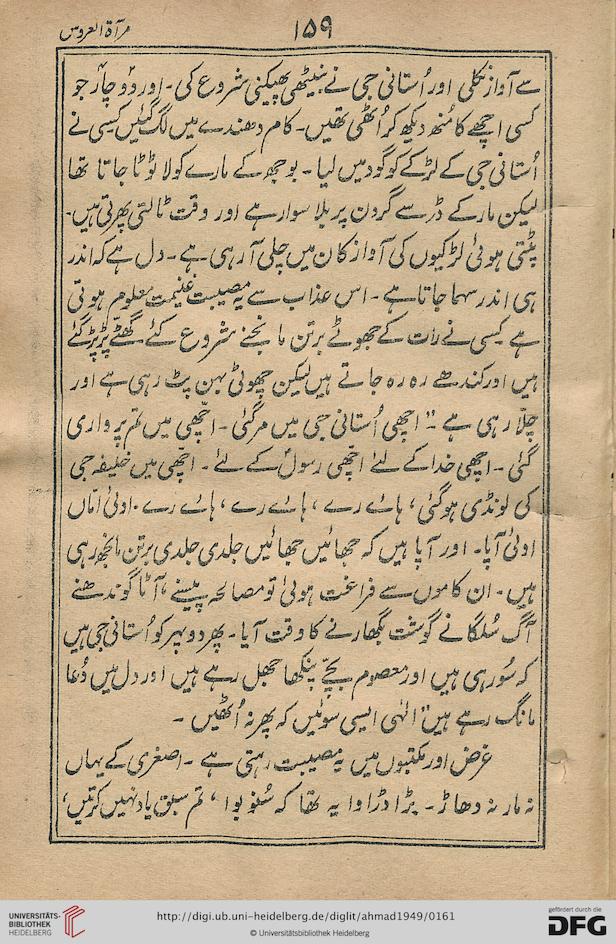 مرآۃ العروس ۱۵۹
سے آواز نکلی اور اُستانی جی نے بنیٹھی پھیکنی شروع کی۔ اور دو چار جو
کسی اچھے کا مُنھ دیکھ کر اُٹھی تھیں۔ کام دھندے میں لگ گئیں کسی نے
اُستانی جی کے لڑکے کو گود میں لیا۔ بوجھ کے مارے کولا ٹوٹا جاتا تھا
لیکن مار کے ڈر سے گردن پر بلا سوار ہے اور وقت ٹالتی پھرتی ہیں۔
پٹتی ہوئی لڑکیوں کی آواز کان میں چلی آ رہی ہے۔ دل ہے کہ اندر
ہی اندر سہما جاتا ہے۔ اس عذاب سے یہ مصیبت غنیمت معلوم ہوتی
ہے کسی نے رات کے جھوٹے برتن مانجنے شروع کئے گھٹّے پڑ پڑ گئے
ہیں اور کندھے رہ رہ جاتے ہیں لیکن چھوٹی بہن پٹ رہی ہے اور
چلّا رہی ہے۔" اچھی اُستانی جی میں مر گئی۔ اچھی میں تم پر واری
گئی۔ اچھی خدا کے لئے اچھی رسول کے لئے۔ اچھی میں خلیفہ جی
کی لونڈی ہو گئی، ہائے رے، ہائے رے، ہائے رے۔ اوئی امّاں
اوئی آپا۔ اور آپا ہیں کہ جھائیں جھائیں جلدی جلدی برتن مانجھ رہی
ہیں۔ ان کاموں سے فراغت ہوئی تو مصالحہ پیسنے، آٹا گوندھنے
آگ سُلگانے گوشت بگھارنے کا وقت آیا۔ پھر دوپہر کو اُستانی جی ہیں
کہ سو رہی ہیں اور معصوم بچّے پنکھا جھل رہے ہیں اور دل میں دُعا
مانگ رہے ہیں" الٰہی ایسی سوئیں کہ پھر نہ اُٹھیں۔
غرض اور مکتبوں میں یہ مصیبت رہتی ہے۔ اصغری کے یہاں
نہ مار نہ دھاڑ۔ بڑا ڈراوا یہ تھا کہ سُنو بوا، تم سبق یاد نہیں کرتیں،
UNIVERSITÄTS-
BIBLIOTHEK
HEIDELBERG
http://digi.ub.uni-heidelberg.de/diglit/ahmad1949/0161
© Universitätsbibliothek Heidelberg
gefördert durch die
DFG